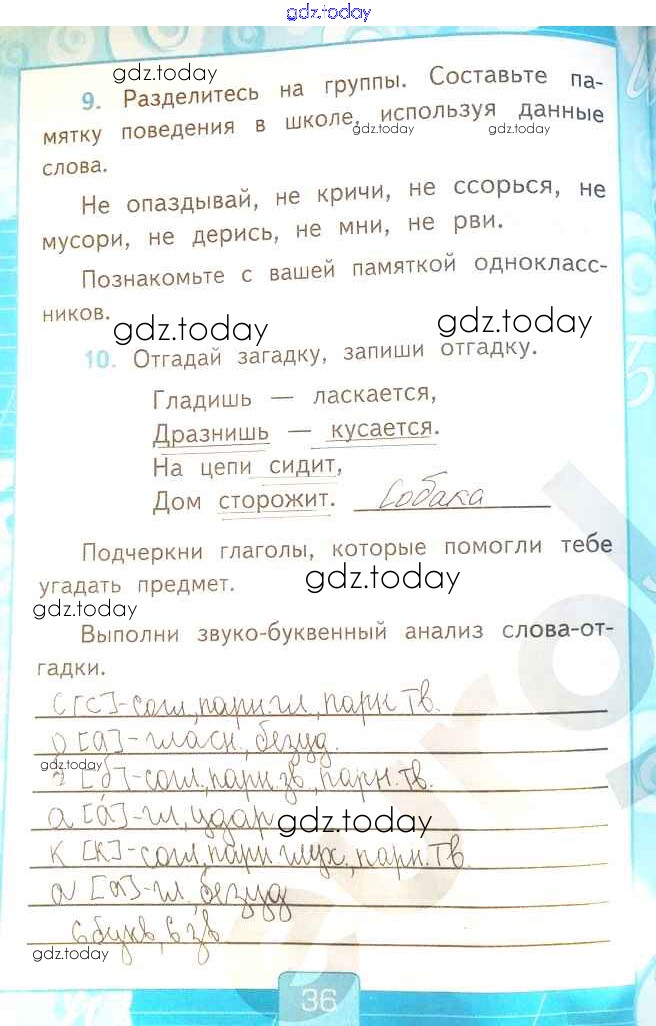 gdz.today
gdz.today
9. Разделитесь на группы. Составьте па-
мятку поведения в школе, используя данные
gdz.today gdz.today
слова.
Не опаздывай, не кричи, не ссорься, не
мусори, не дерись, не мни, не рви.
Познакомьте с вашей памяткой однокласс-
ников.
gdz.today gdz.today
10. Отгадай загадку, запиши отгадку.
Гладишь — ласкается,
Дразнишь — кусается.
На цепи сидит,
Дом сторожит. Собака
Подчеркни глаголы, которые помогли тебе
угадать предмет.
gdz.today
gdz.today
Выполни звуко-буквенный анализ слова-от-
гадки.
с [с]-согл, парн.гл, парн.тв.
о [а]-гласн, безуд.
gdz.today
[б]-согл, парн.зв, парн.тв.
а [а́]-гл, удар
gdz.today
к [к]-согл, парн глух, парн.тв.
а [а]-гл, безуд
6 букв, 6 зв
gdz.today
36